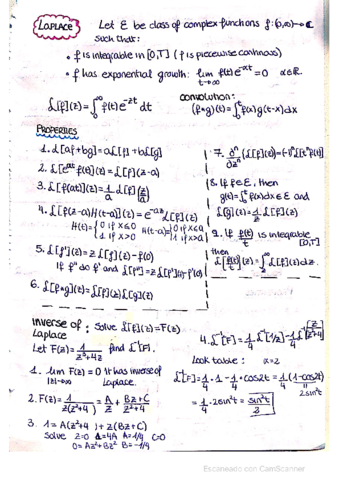 LAPLACE
Let E be class of complex functions f:(0,∞)→C
such that:
• f is integrable in [0,T] (f is piecewise continuous)
• f has exponential growth: lim t→∞ f(t)e^-αt = 0 α∈R.
L[f](z) = ∫₀^∞ f(t)e^-zt dt
convolution:
(f*g)(t) = ∫₀^t f(x)g(t-x)dx
PROPERTIES
1. L[af+bg] = aL[f]+bL[g]
2. L[e^at f(t)](z) = L[f](z-a)
3. L[f(at)](z) = 1/a L[f](z/a)
4. L[f(z-a)H(t-a)](z) = e^-az L[f](z)
H(t)={ 0 if x≤0 H(t-a)={ 0 if x≤a
1 if x>0 1 if x>a
5. L[f'](z) = zL[f](z) - f(0)
If f'' do f' and L[f''] = zL[f'](z)-f'(0)
6. L[f*g](z) = L[f](z)L[g](z)
7. ∂^n/∂z^n (L[f](z)) = (-1)^n L[t^n f(t)]
8. If f∈E, then
g(t) = ∫₀^t f(x)dx ∈ E and
L[g](z) = 1/z L[f](z)
9. If f(t)/t is integrable [0,T]
then
L[f(t)/t](z) = ∫_z^∞ L[f](z)dz.
Inverse of Laplace: Solve L[f](z) = F(z)
Let F(z) = 1/z³+4z find L⁻¹[F].
1. lim |z|→∞ F(z) = 0 It has inverse of
Laplace.
2. F(z) = 1/z(z²+4) = A/z + Bz+C/z²+4
3. 1 = A(z²+4) + z(Bz+C)
Solve z=0 1=4A A=1/4 C=0
0=Az²+Bz² B=-1/4
4. L⁻¹[F] = 1/4 L⁻¹[1/z] - 1/4 L⁻¹[z/z²+4]
Look table: α=2
L⁻¹[F] = 1/4 · 1 - 1/4 · cos2t = 1/4 (1-cos2t)
2sin²t
= 1/4 · 2sin²t = sin²t/2
Escaneado con CamScanner